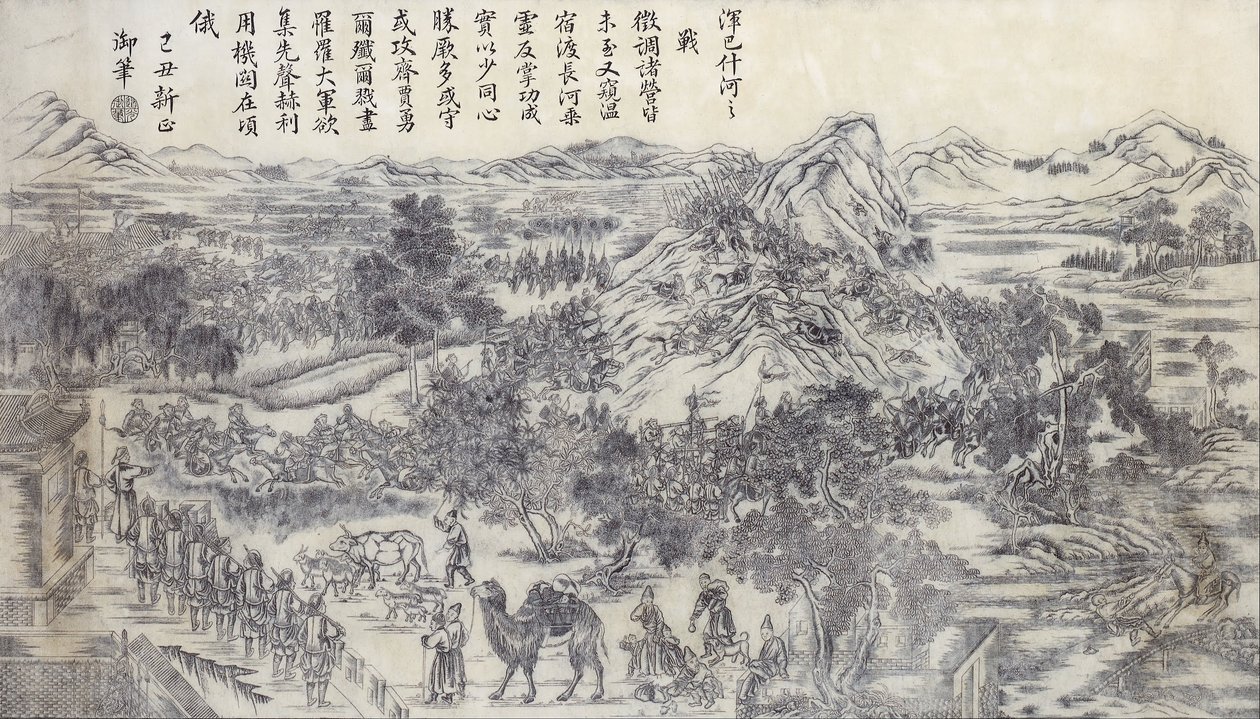 渾巴什河之
戰
徵調諸營皆
未至又窺温
宿渡長河乘
虛反掌功成
實以少同心
勝厥多或守
或攻齊賈勇
爾殲爾戮盡
罹羅大軍欲
集先聲赫利
用機關在頃
俄
己丑新正
御筆